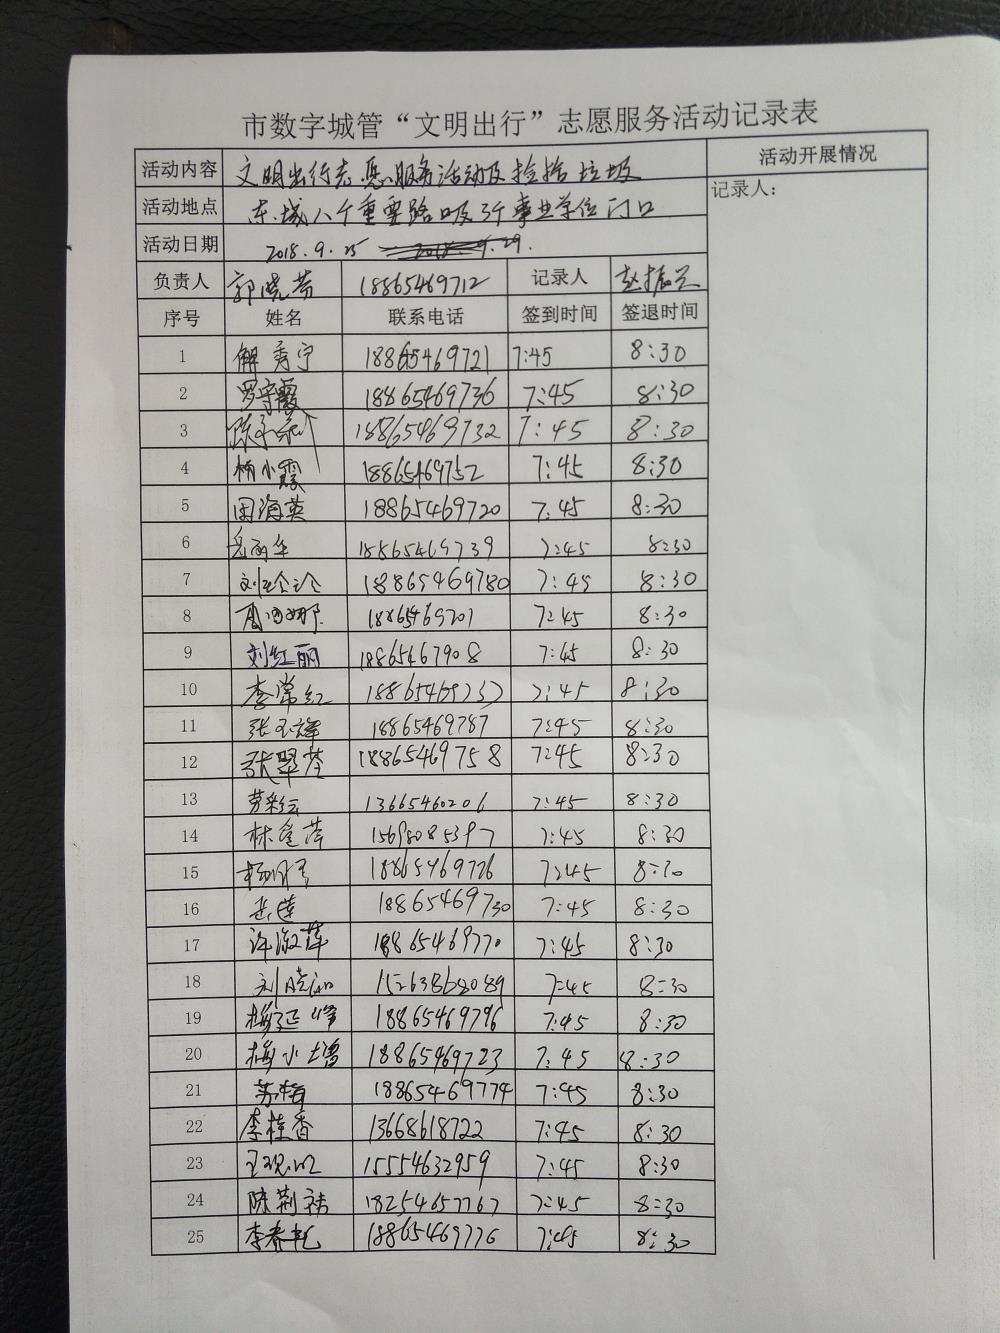 市数字城管“文明出行”志愿服务活动记录表
活动内容 文明出行志愿服务活动及捡拾垃圾 活动开展情况
活动地点 东城八个重要路口及3个事业单位门口 记录人：
活动日期 2018.9.25
负责人 郭晓芳 18865469712 记录人 赵振兰
序号 姓名 联系电话 签到时间 签退时间
1 解秀宁 18865469721 7:45 8:30
2 罗守霞 18865469736 7:45 8:30
3 18865469732 7:45 8:30
4 杨小霞 18865469752 7:45 8:30
5 周海英 18865469720 7:45 8:30
6 岳丽华 18865469739 7:45 8:30
7 刘玲玲 18865469780 7:45 8:30
8 18865469701 7:45 8:30
9 刘红丽 18865467908 7:45 8:30
10 李常红 7:45 8:30
11 张玉辉 18865469787 7:45 8:30
12 张翠苓 18865469758 7:45 8:30
13 劳彩云 13665460206 7:45 8:30
14 15698085397 7:45 8:30
15 18865469726 7:45 8:30
16 岳莲 18865469730 7:45 8:30
17 许淑萍 18865469770 7:45 8:30
18 15263868089 7:45 8:30
19 梅延峰 18865469796 7:45 8:30
20 梅小增 18865469723 7:45 8:30
21 苏梅 18865469774 7:45 8:30
22 李桂香 13668618722 7:45 8:30
23 15554632959 7:45 8:30
24 陈荆祎 18254657767 7:45 8:30
25 李春艳 18865469776 7:45 8:30